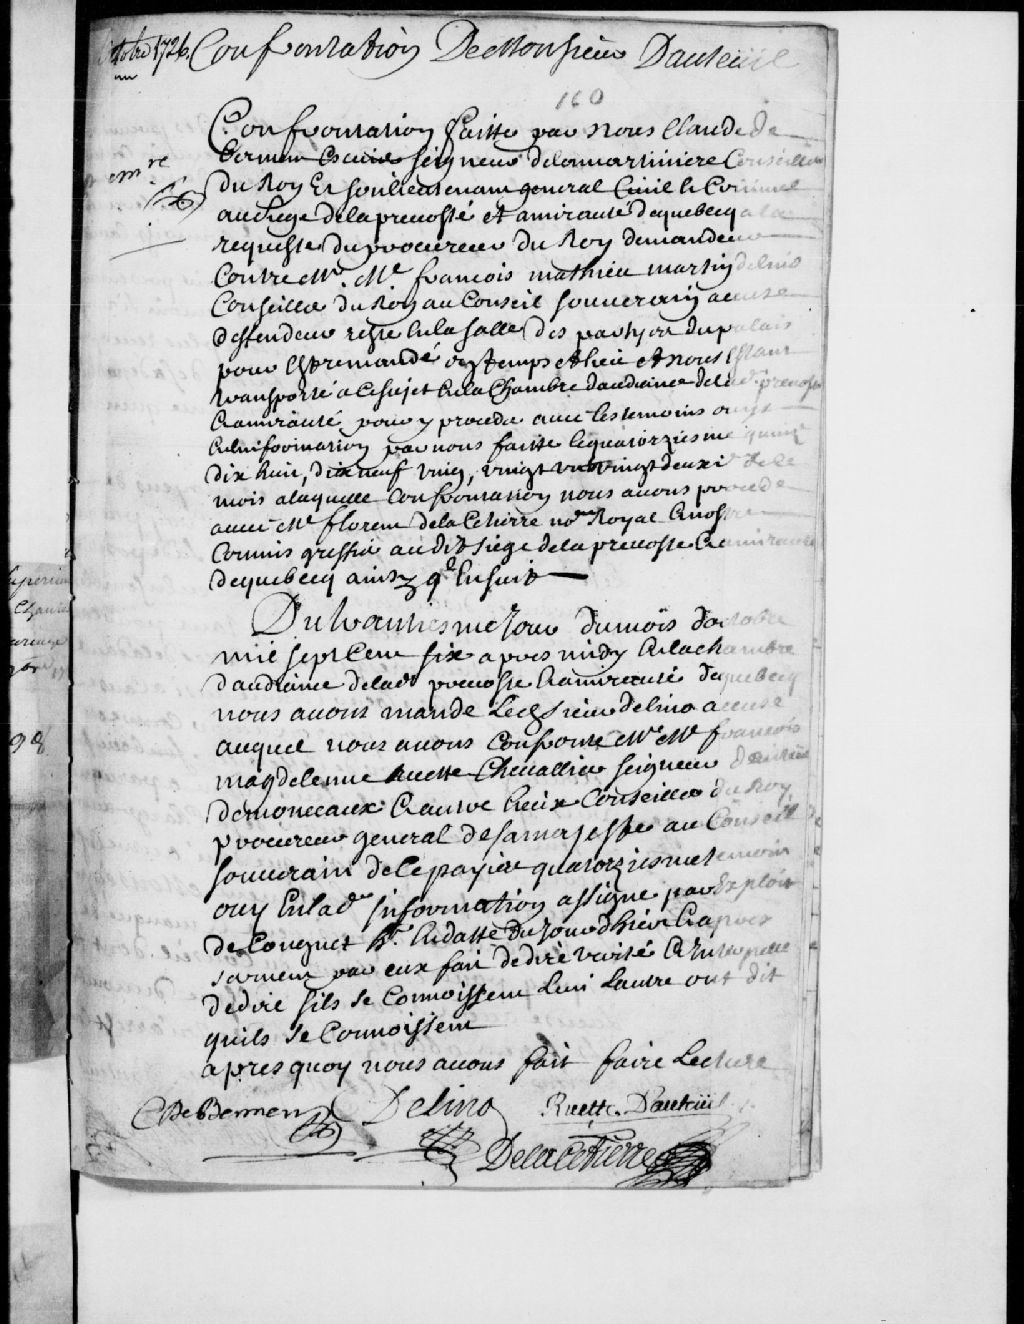 octobre 1726. Confrontation De Monsieur Dauteüil
160
Confrontation faitte par nous Claude de
Bermen Escuier seigneur delamartiniere Conseiller
du Roy Et son lieutenant general Ciuil & Criminel
au siege de la preuosté et amirauté de quebecq a la
requeste du procureur du Roy demandeur
Contre Mr. Me françois mathieu martin delino
Conseiller du Roy au Conseil souuerain accusé
deffendeur en la salle des du palais
pour temps et lieu et nous Estant
transporté a ce sujet En la Chambre daudiance de lad preuosté
& amirauté pour y proceder auec les temoins ouys
En linformation par nous faitte le quatorziesme quinze
dix huit, dix neuf vingt, vingt un vingt deuxe de ce
mois a laquelle Confrontation nous auons procedé
auec Me florent delaCetierre nore Royal Et nostre
Commis greffier audit siege de la preuosté & amirauté
de quebecq ainsy ql Ensuit
Du trantiesme Jour du mois doctobre
mil sept Cent six apres midy En la chambre
daudiance de lad preuosté & amirauté de quebecq
nous auons mandé Led Sieur delino accusé
auquel nous auons Confronté Mr Me françois
magdelenne Ruette Cheuallier seigneur dauteüil
de monceaux & autre lieux Conseiller du Roy
procureur general de sa majesté au Conseil
souuerain de Ce pays quatorziesme temoin
ouy En lad information assigné par Exploit
de Congnet hr. En datte du Jour dhier & apres
serment par eux fait de dire verité & Interpellé
de dire sils se Connoissent Lun Lautre ont dit
quils se Connoissent
apres quoy nous auons fait faire Lecture
CDeBermen Delino Ruette Dauteüil
DelaCetierre
98